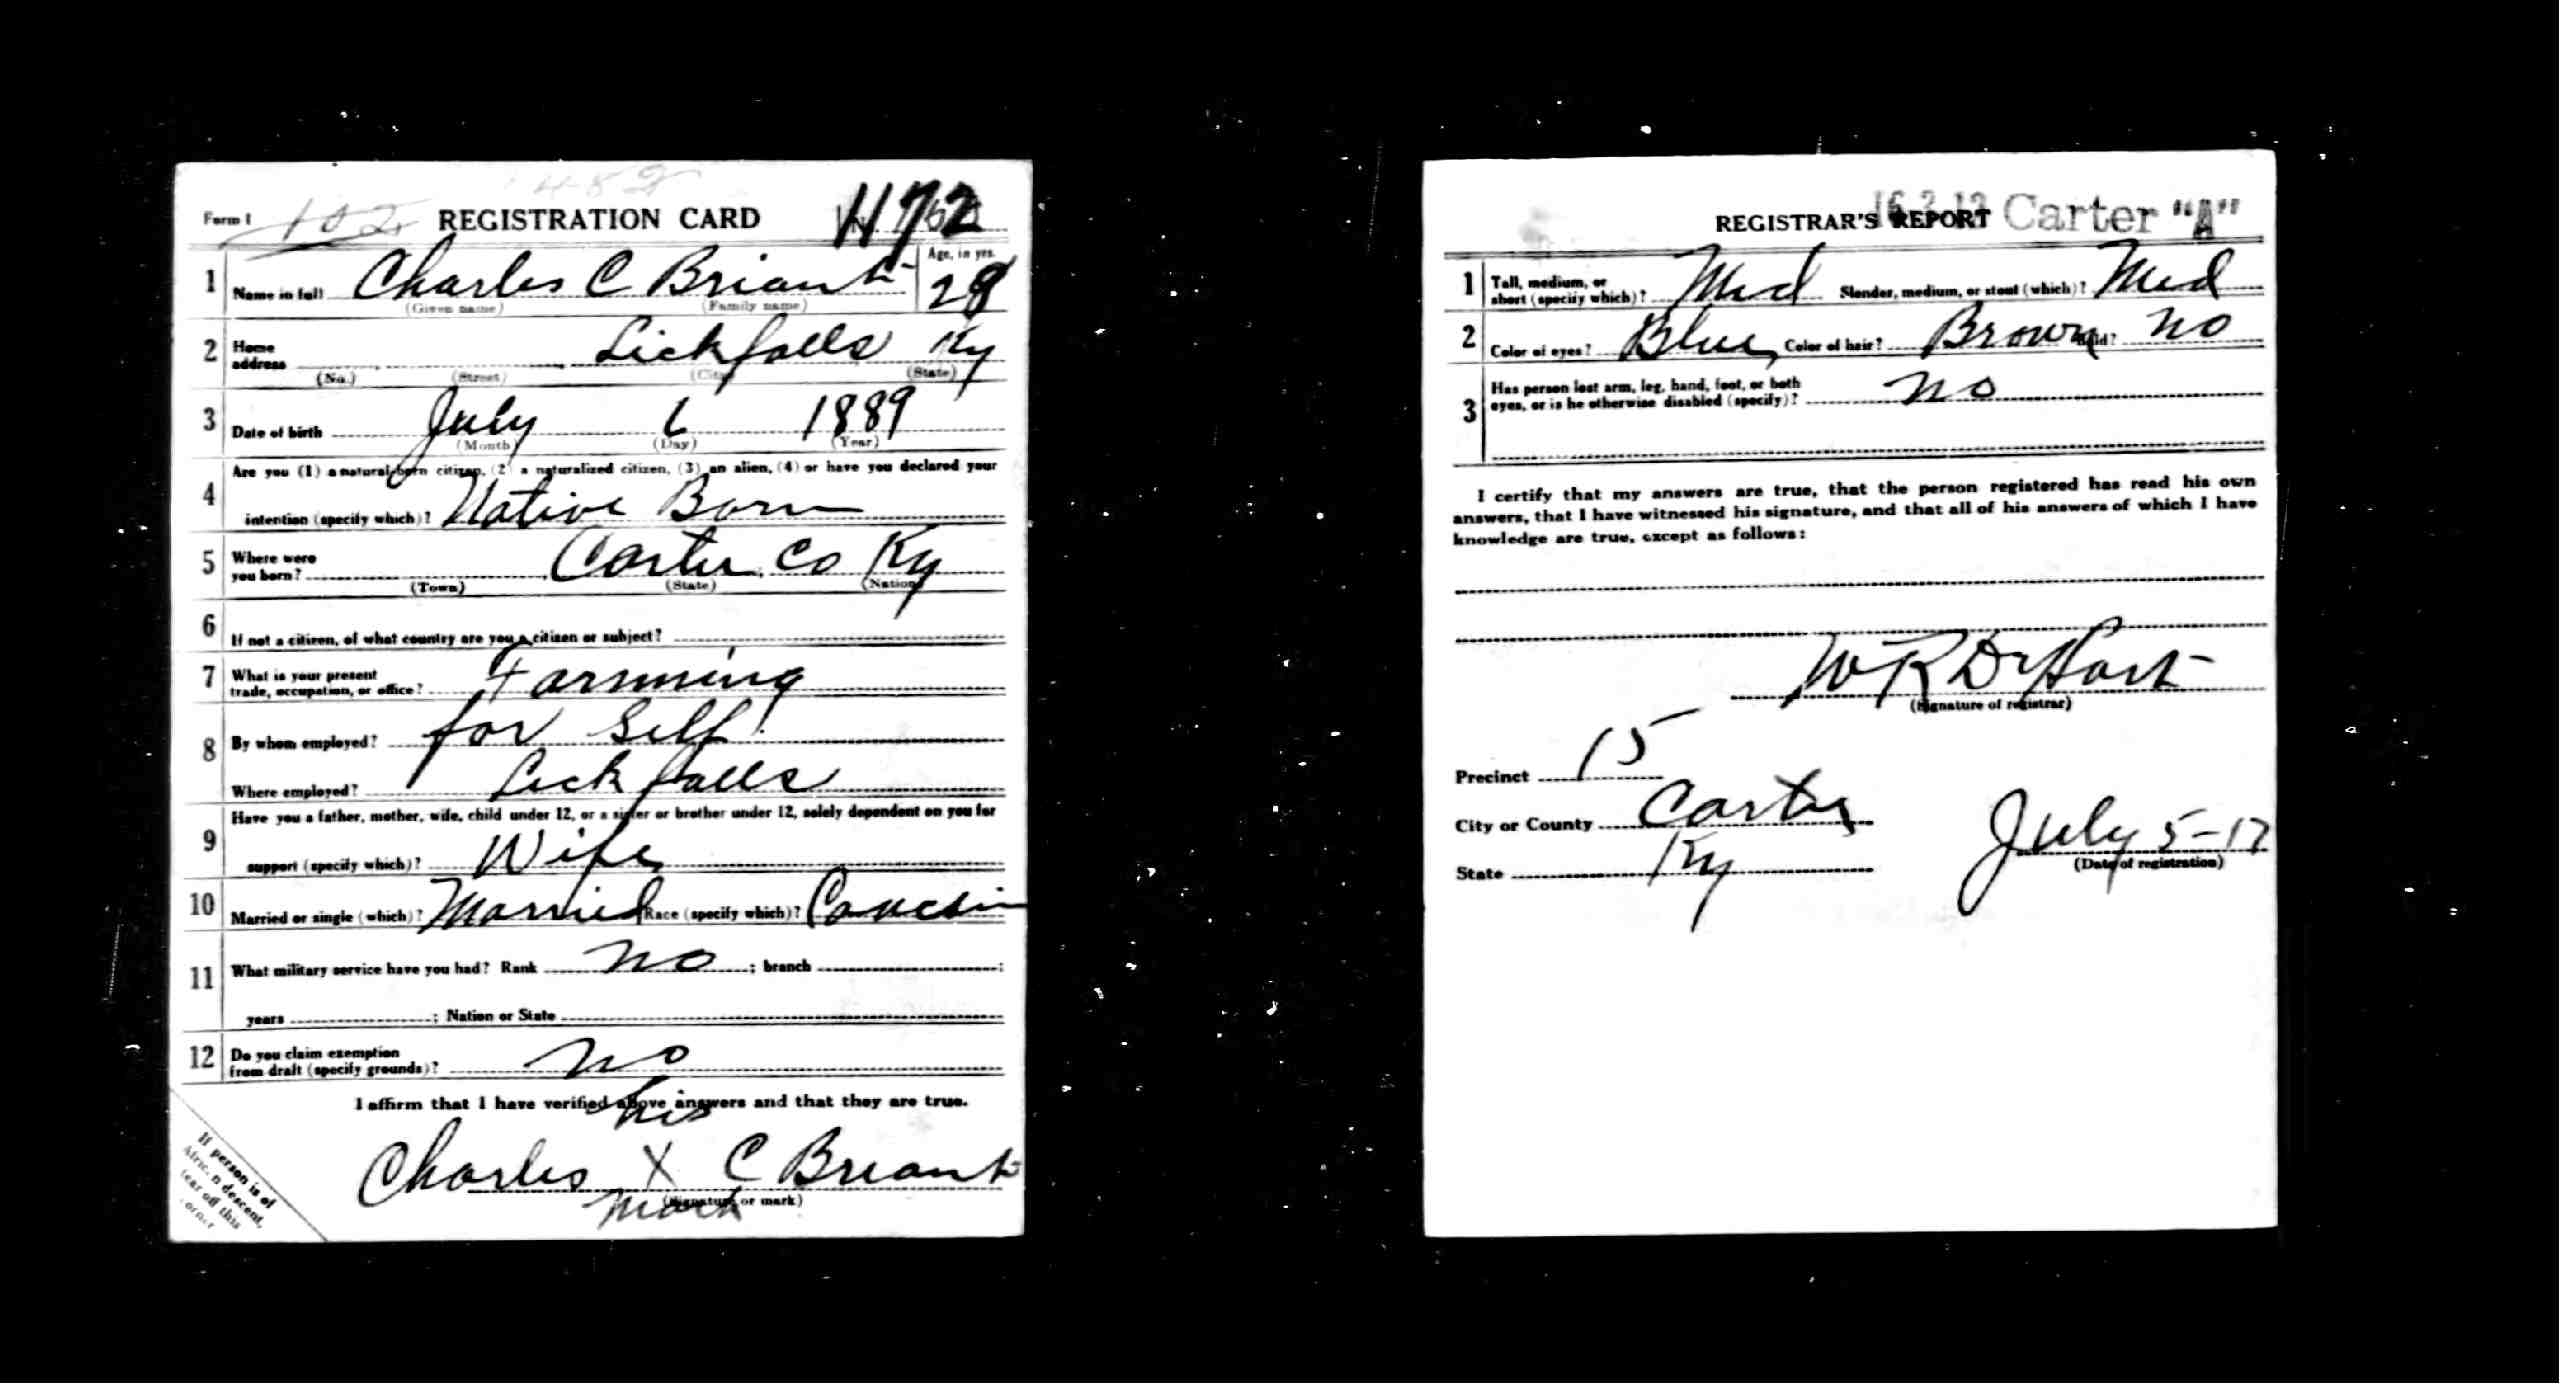 Form 1 102 REGISTRATION CARD 1172
1 Name in full Charles C Briant Age, in yrs. 28
(Given name) (Family name)
2 Home address Lickfalls Ky
(No.) (Street) (City) (State)
3 Date of birth July 6 1889
(Month) (Day) (Year)
4 Are you (1) a natural-born citizen, (2) a naturalized citizen, (3) an alien, (4) or have you declared your
intention (specify which)? Native Born
5 Where were you born? Carter Co Ky
(Town) (State) (Nation)
6 If not a citizen, of what country are you a citizen or subject?
7 What is your present trade, occupation, or office? Farming
8 By whom employed? for Self
Where employed? Lick falls
9 Have you a father, mother, wife, child under 12, or a sister or brother under 12, solely dependent on you for
support (specify which)? Wife
10 Married or single (which)? Married Race (specify which)?
11 What military service have you had? Rank no ; branch ;
years ; Nation or State
12 Do you claim exemption from draft (specify grounds)? no
I affirm that I have verified above answers and that they are true.
his
Charles X C Briant
(Signature or mark)
mark
If person is of
African descent,
tear off this
corner
REGISTRAR'S REPORT Carter "A"
1 Tall, medium, or short (specify which)? Med Slender, medium, or stout (which)? Med
2 Color of eyes? Blue Color of hair? Brown Bald? no
3 Has person lost arm, leg, hand, foot, or both
eyes, or is he otherwise disabled (specify)? no
I certify that my answers are true, that the person registered has read his own
answers, that I have witnessed his signature, and that all of his answers of which I have
knowledge are true, except as follows:
W R DeHart
(Signature of registrar)
Precinct 15
City or County Carter
State Ky
July 5-17
(Date of registration)